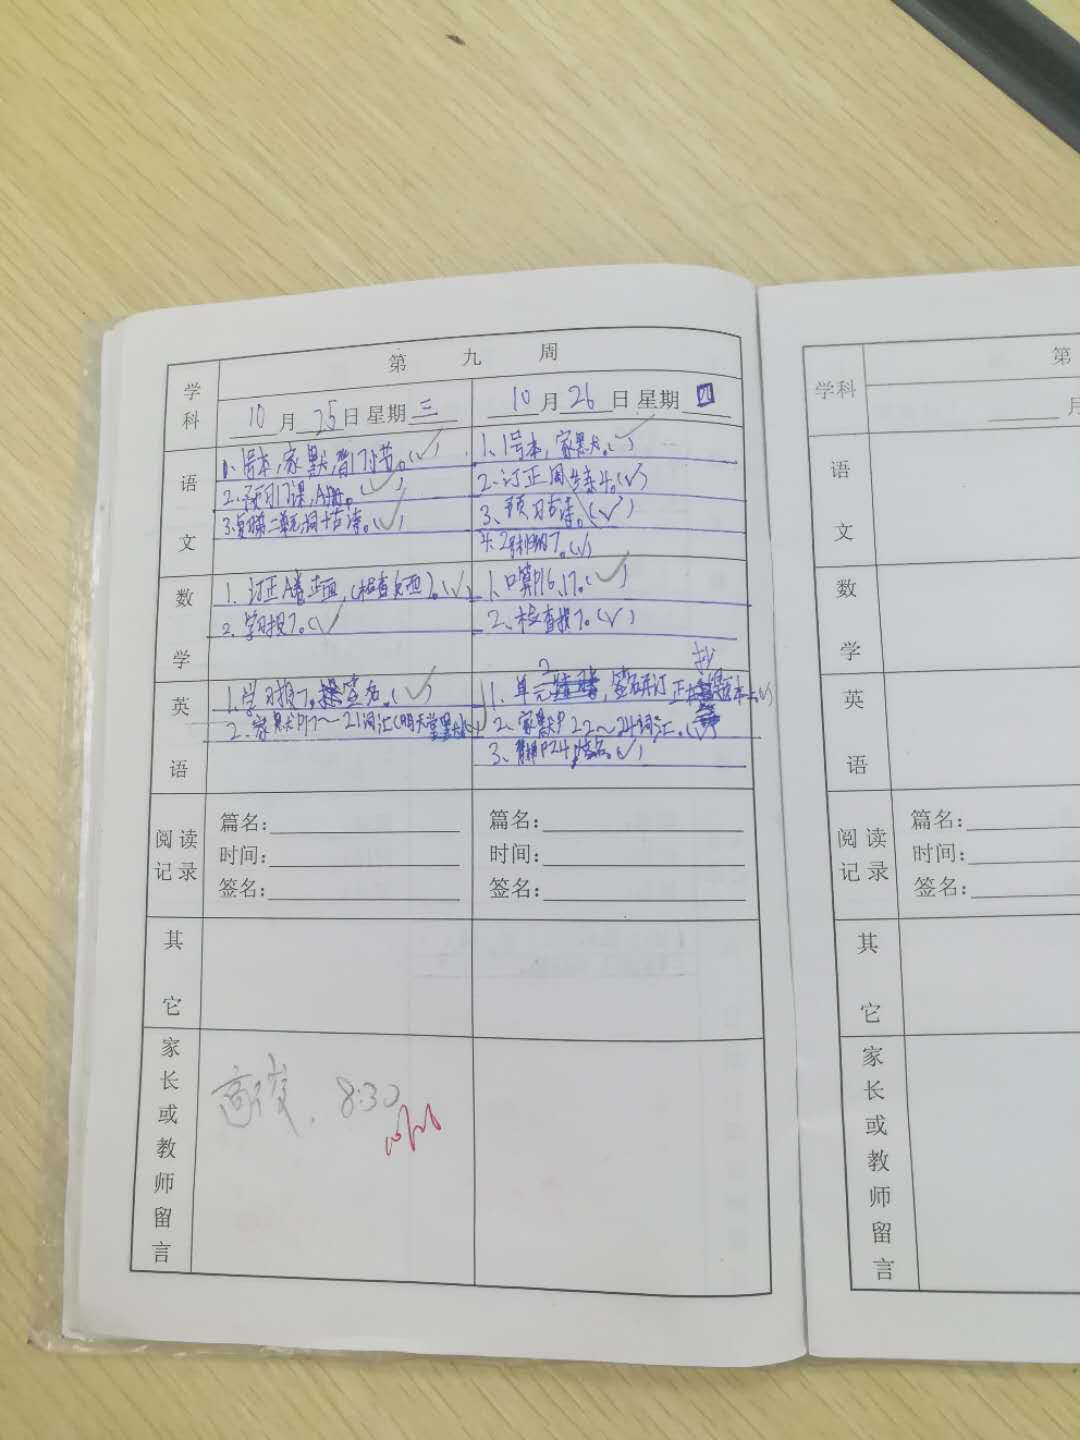 第九周
学科
10月25日 星期三
10月26日 星期四
语文
1、1号本,家默,背17小节。(✓)
2.预习17课,A册。(✓)
3.复习第二单元词+古诗。(✓)
1、1号本,家默。(✓)
2.订正周练4。(✓)
3、预习古诗。(✓)
4.2号本7。(✓)
数学
1.订正A卷正面,(检查反面)。(✓)
2.学习报7。(✓)
1、口算P16、17。(✓)
2、检查报7。(✓)
英语
1.学习报7。签名。(✓)
2.家默P17～21词汇(明天堂默
1、单元2,签名订正抄本上(✓)
2、家默P22～24词汇。
3、背P24,签名。(✓)
阅读记录
篇名:
时间:
签名:
篇名:
时间:
签名:
其它
家长或教师留言
8:30
第
学科
月
语文
数学
英语
阅读记录
篇名:
时间:
签名:
其它
家长或教师留言